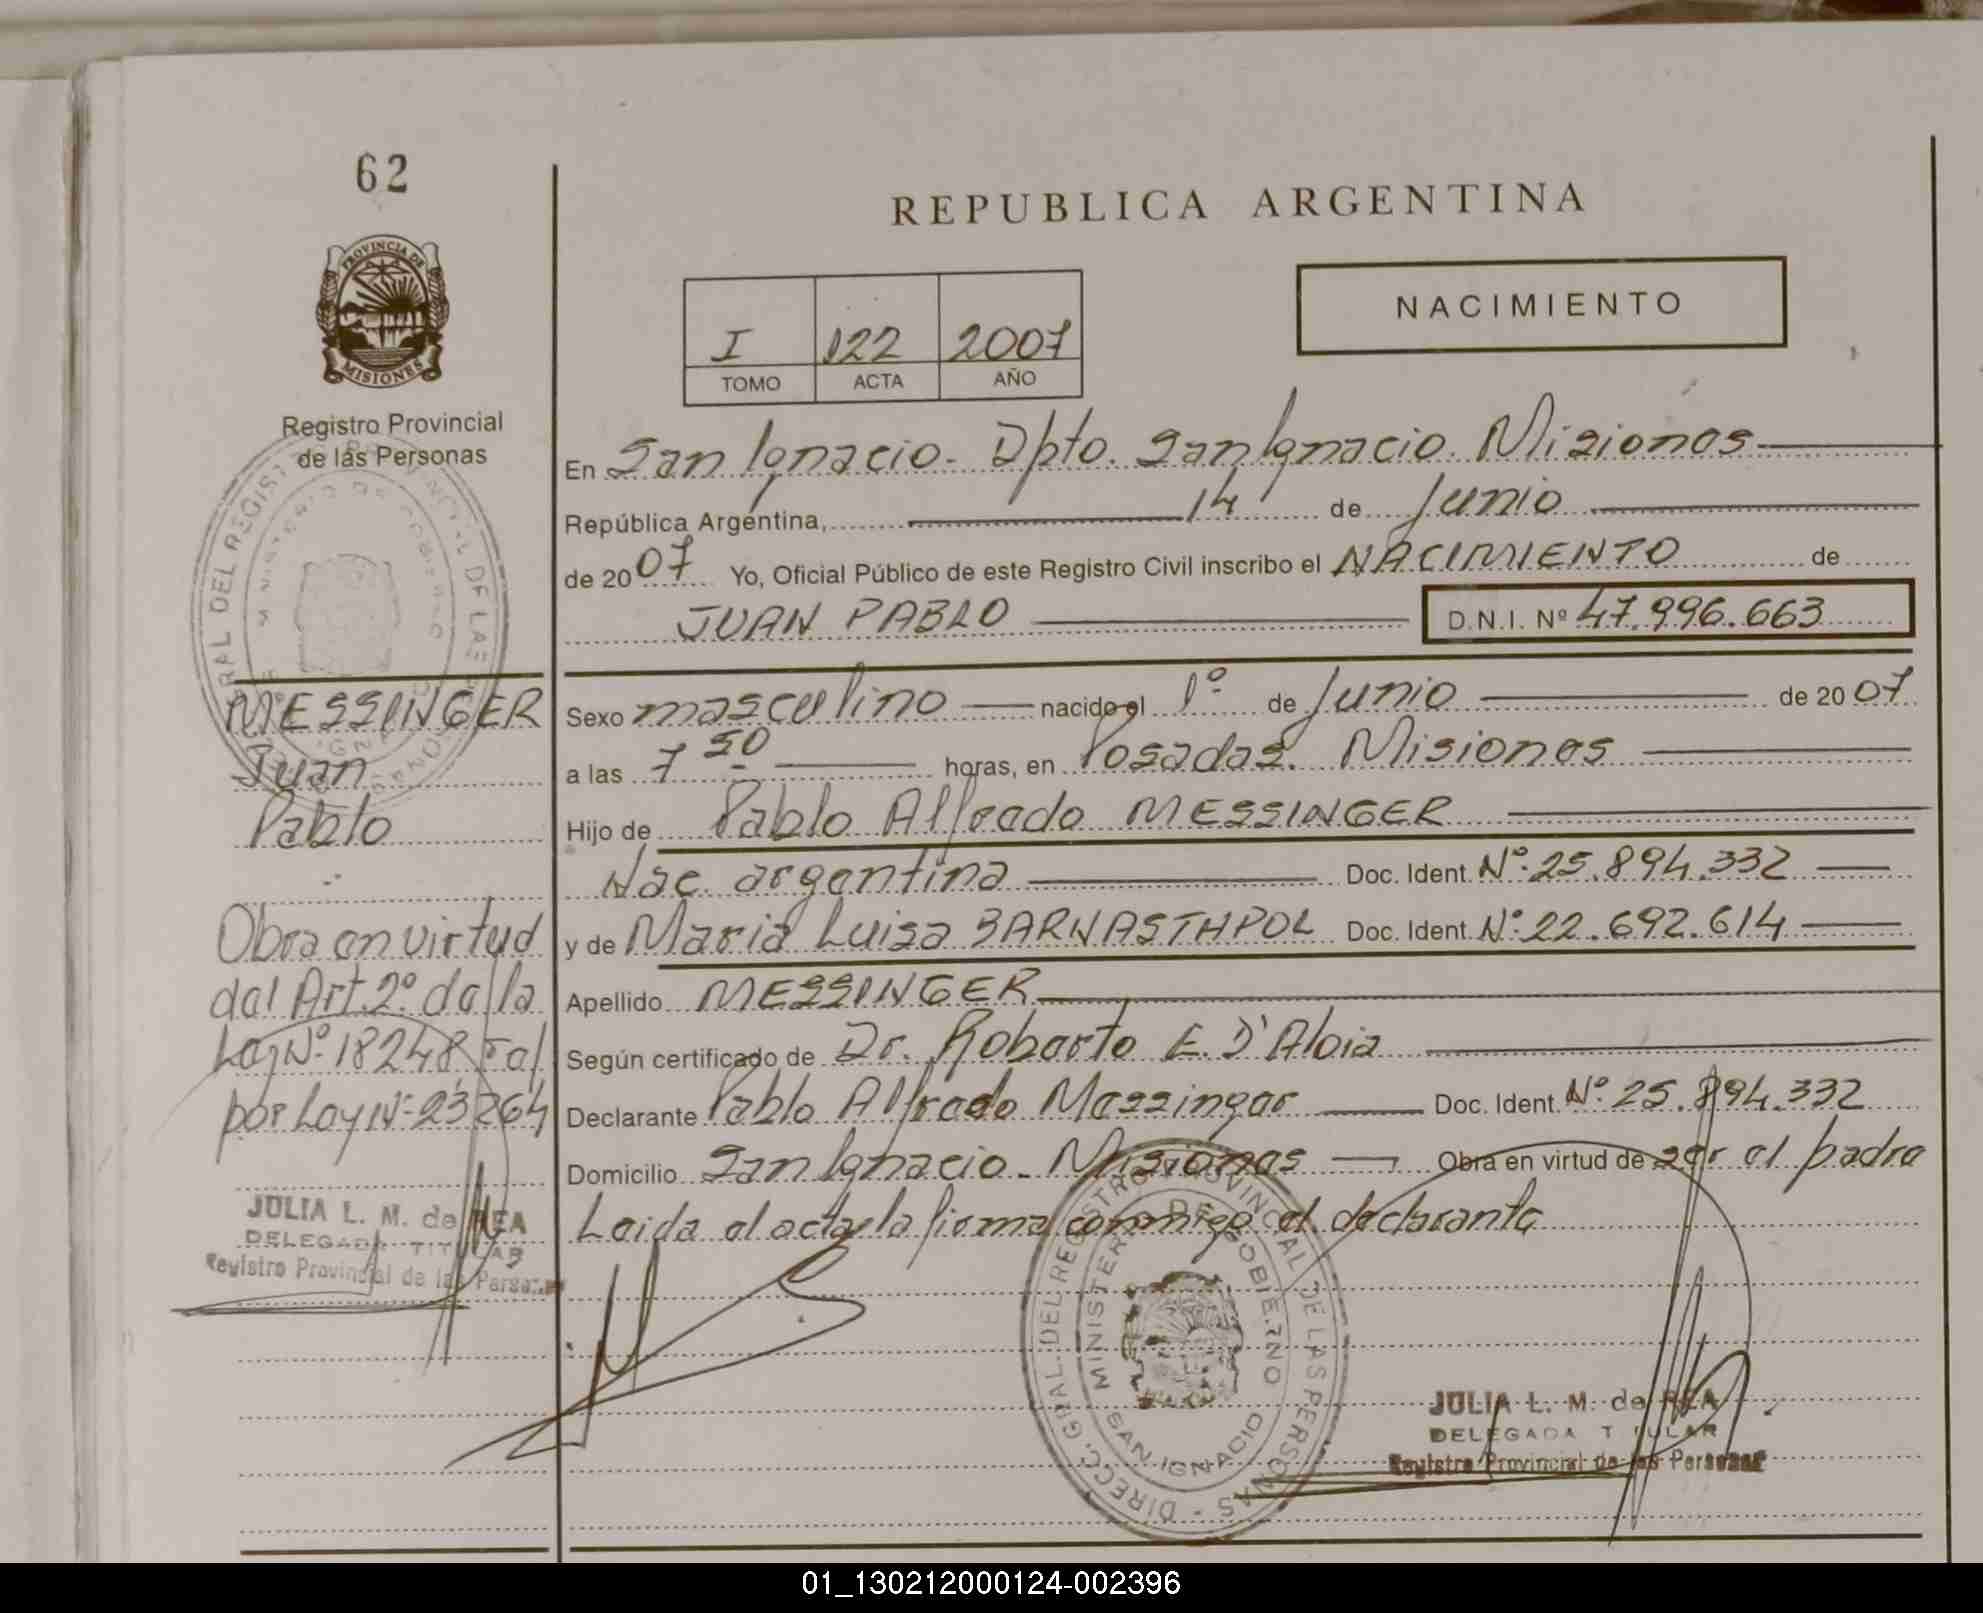 62
REPUBLICA ARGENTINA
PROVINCIA DE
MISIONES
NACIMIENTO
I 122 2007
TOMO ACTA AÑO
Registro Provincial
de las Personas
En San Ignacio. Dpto. San Ignacio. Misiones
República Argentina, 14 de Junio
de 2007 Yo, Oficial Público de este Registro Civil inscribo el NACIMIENTO de
JUAN PABLO D.N.I. Nº 47.996.663
MESSINGER
Juan
Pablo
Sexo masculino nacido el 1º de Junio de 2007
a las 7 50 horas, en Posadas. Misiones
Hijo de Pablo Alfredo MESSINGER
Nac. argentina Doc. Ident. Nº 25.894.332
y de Maria Luisa BARNASTHPOL Doc. Ident. Nº 22.692.614
Apellido MESSINGER
Según certificado de Dr. Roberto E. D'Aloia
Declarante Pablo Alfredo Messinger Doc. Ident. Nº 25.894.332
Domicilio San Ignacio - Misiones Obra en virtud de ser el padre
Leida el acta la firma conmigo el declarante
Obra en virtud
del Art. 2º de la
Ley Nº 18248, ref.
por Ley Nº 23264
JULIA L. M. de REA
DELEGADA TITULAR
Registro Provincial de las Personas
DIRECC. GRAL. DEL REGISTRO PROVINCIAL DE LAS PERSONAS
MINISTERIO DE GOBIERNO
SAN IGNACIO
JULIA L. M. de REA
DELEGADA TITULAR
Registro Provincial de las Personas
01_130212000124-002396